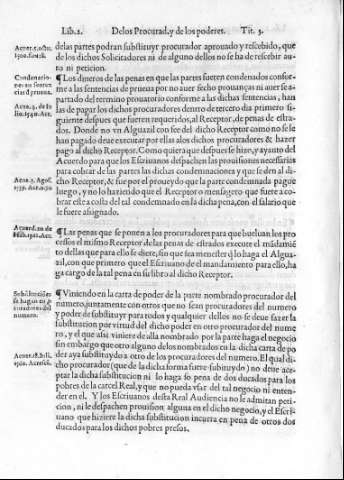 Lib. 2. De los Procurad. y de los poderes. Tit. 3.
de las partes podran substituyr procurador aprouado y rescebido, que
de los dichos Solicitadores ni de alguno dellos no se ha de rescebir au-
to ni peticion.
¶Los dineros de las penas en que las partes fueren condenados confor-
me a las sentencias de prueua por no auer fecho prouanças ni auerse a-
partado del termino prouatorio conforme a las dichas sentencias, han
las de pagar los dichos procuradores dentro de tercero dia primero si-
guiente despues que fueren requeridos, al Receptor, de penas de estra-
dos. Donde no vn Alguazil con fee del dicho Receptor como no se le
han pagado deue executar por ellas a los dichos procuradores & hazer
pago al dicho Receptor. Como quiera que despues se hizo, y ay auto del
Acuerdo para que los Escriuanos despachen las prouisiones necessarias
para cobrar de las partes las dichas condemnaciones y que se den al di-
cho Receptor, & fue por el proueydo que la parte condemnada pague
luego, y no lo haziendo que el Receptor o mensagero que fuere a co-
brar este a costa del tal condemnado en la dicha pena, con el salario que
le fuere asignado.
¶Las penas que se ponen a los procuradores para que bueluan los pro
cessos el mismo Receptor de las penas de estrados execute el mãdamiẽ
to dellas que para ello se diere, sin que sea menester q lo haga el Algua-
zil, con que primero que el Escriuano de el mandamiento para ello, ha
ga cargo de la tal pena en su libro al dicho Receptor.
¶Viniendo en la carta de poder de la parte nombrado procurador del
numero, juntamente con otros que no sean procuradores del numero
y poder de substituyr para todos y qualquier dellos no se deue fazer la
substitucion por virtud del dicho poder en otro procurador del nume
ro, y el que assi viniere de alla nombrado por la parte haga el negocio
sin embargo que otro alguno de los nombrados en la dicha carta de po
der aya substituydo a otro de los procuradores del numero. El qual di-
cho procurador (que de la dicha forma fuere substituydo) no deue ace-
ptar la dicha substitucion ni lo haga so pena de dos ducados para los
pobres de la carcel Real, y que no pueda vsar del tal negocio ni enten-
der en el. Y los Escriuanos desta Real Audiencia no le admitan peti-
cion, ni le despachen prouision alguna en el dicho negocio, y el Escri-
uano que hiziere la dicha substitucion incurra en pena de otros dos
ducados para los dichos pobres presos.